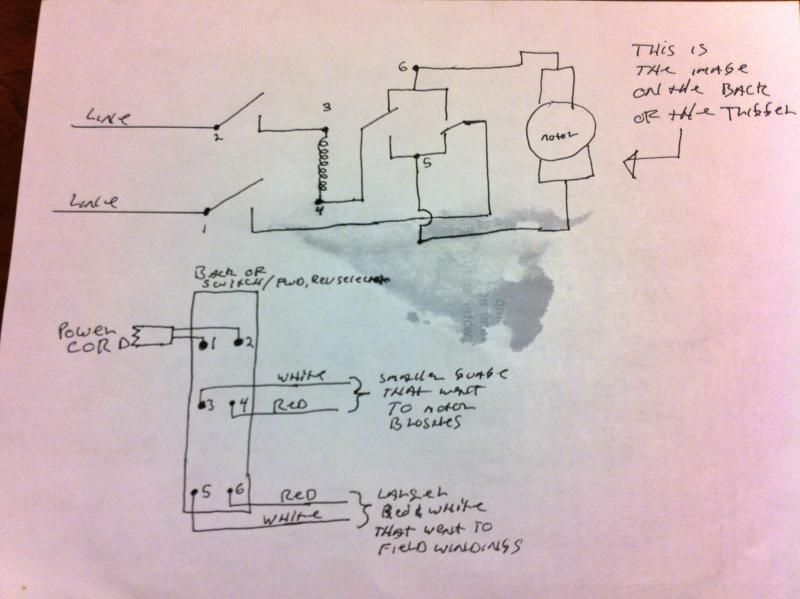 THIS IS
THE IMAGE
ON the BACK
OF the TRIGGER
6
Line
2
3
5
MOTOR
Line
1
4
BACK OF
SWITCH/FWD, REV SELECTOR
POWER
CORD
1 2
WHITE
3 4
RED
SMALLER GUAGE
THAT WENT
TO MOTOR
BRUSHES
5 6
RED
WHITE
LARGER
Red & WHITE
THAT WENT TO
FIELD WINDINGS